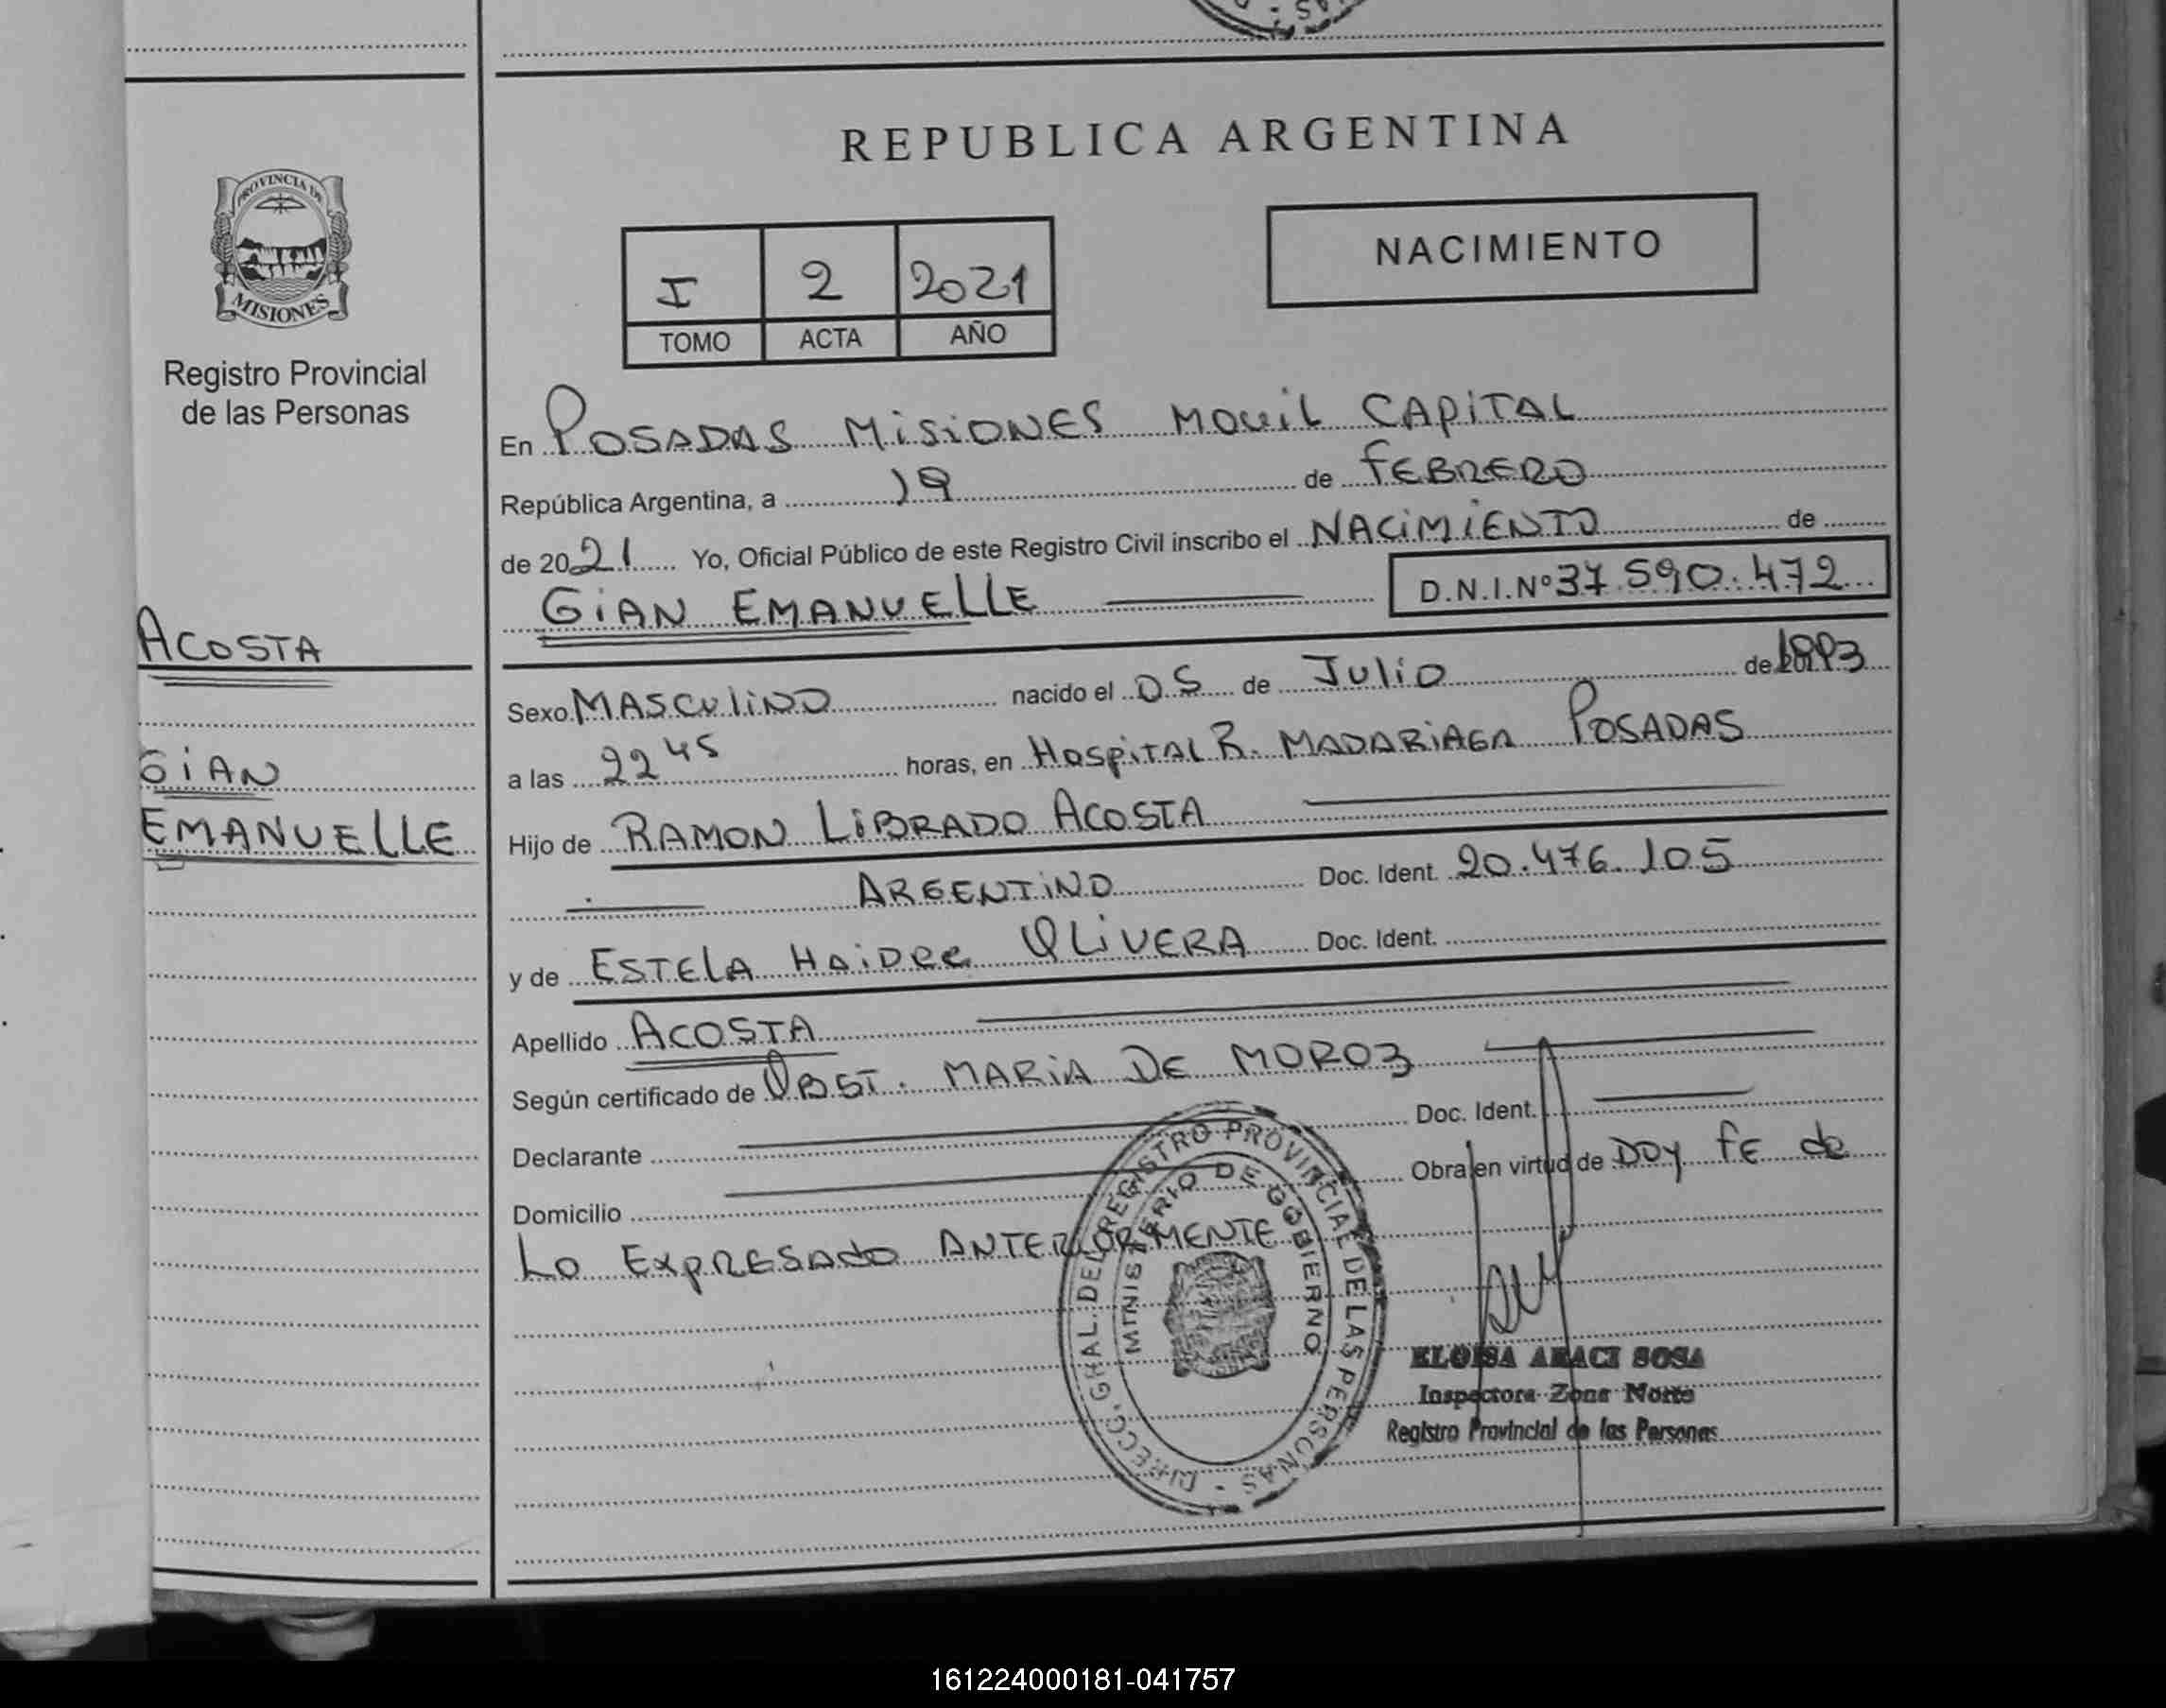 REPUBLICA ARGENTINA
PROVINCIA DE
MISIONES
Registro Provincial
de las Personas
I 2 2021
TOMO ACTA AÑO
NACIMIENTO
En POSADAS MISIONES MOVIL CAPITAL
República Argentina, a 19 de FEBRERO
de 2021 Yo, Oficial Público de este Registro Civil inscribo el NACIMIENTO de
GIAN EMANUELLE D.N.I.Nº 37.590.472
ACOSTA
GIAN
EMANUELLE
Sexo MASCULINO nacido el 05 de JULIO de 1993
a las 22 45 horas, en HOSPITAL R. MADARIAGA POSADAS
Hijo de RAMON LIBRADO ACOSTA
ARGENTINO Doc. Ident. 20.476.105
y de ESTELA HAIDEE OLIVERA Doc. Ident.
Apellido ACOSTA
Según certificado de OBST. MARIA DE MOROZ
Declarante Doc. Ident.
Domicilio Obra en virtud de DOY FE de
LO EXPRESADO ANTERIORMENTE
DIRECC. GRAL. DEL REGISTRO PROVINCIAL DE LAS PERSONAS
MINISTERIO DE GOBIERNO
ELOISA ARACI SOSA
Inspectora Zona Norte
Registro Provincial de las Personas
161224000181-041757